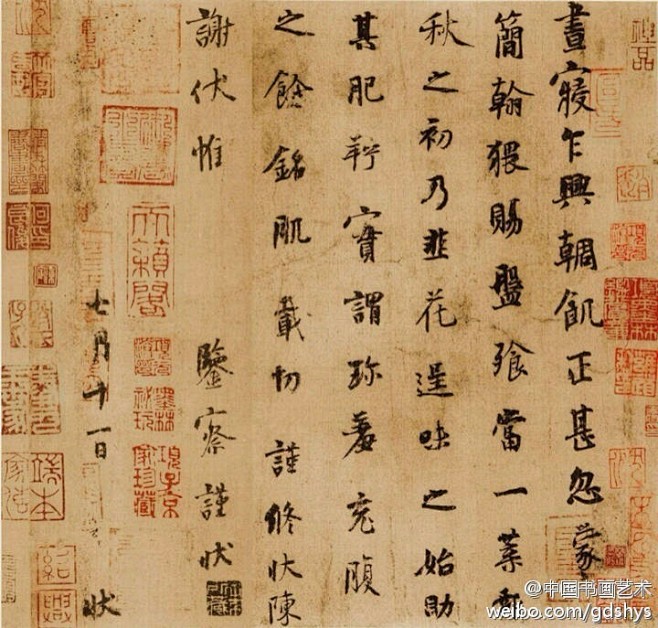 晝寢乍興輖飢正甚忽蒙
簡翰猥賜盤飧當一葉報
秋之初乃韭花逞味之始助
其肥羜實謂珍羞充腹
之餘銘肌載切謹修狀陳
謝伏惟 鑒察謹狀
七月十一日 狀
神品
天籟閣
項子京家珍藏
紹興
@中国书画艺术
weibo.com/gdshys